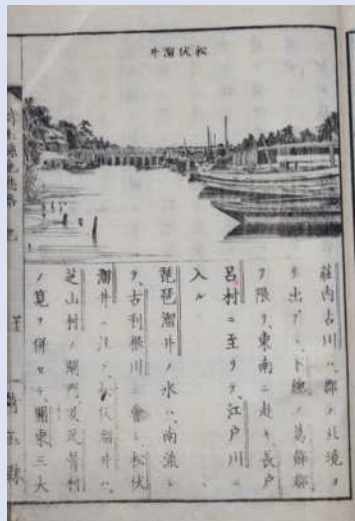 松伏溜井
荘内古川ハ、郡ノ北境ヨ
リ出デ、下總ノ葛飾郡
ヲ限リ、東南ニ赴キ、長戸
呂村ニ至リテ、江戸川ニ
入ル
琵琶溜井ノ水ハ、南流シ
テ、古利根川ニ會シ、松伏
溜井ニ注グ、松伏溜井ハ、
芝山村ノ閘門、及
ノ筧ヲ併セテ、關東三大